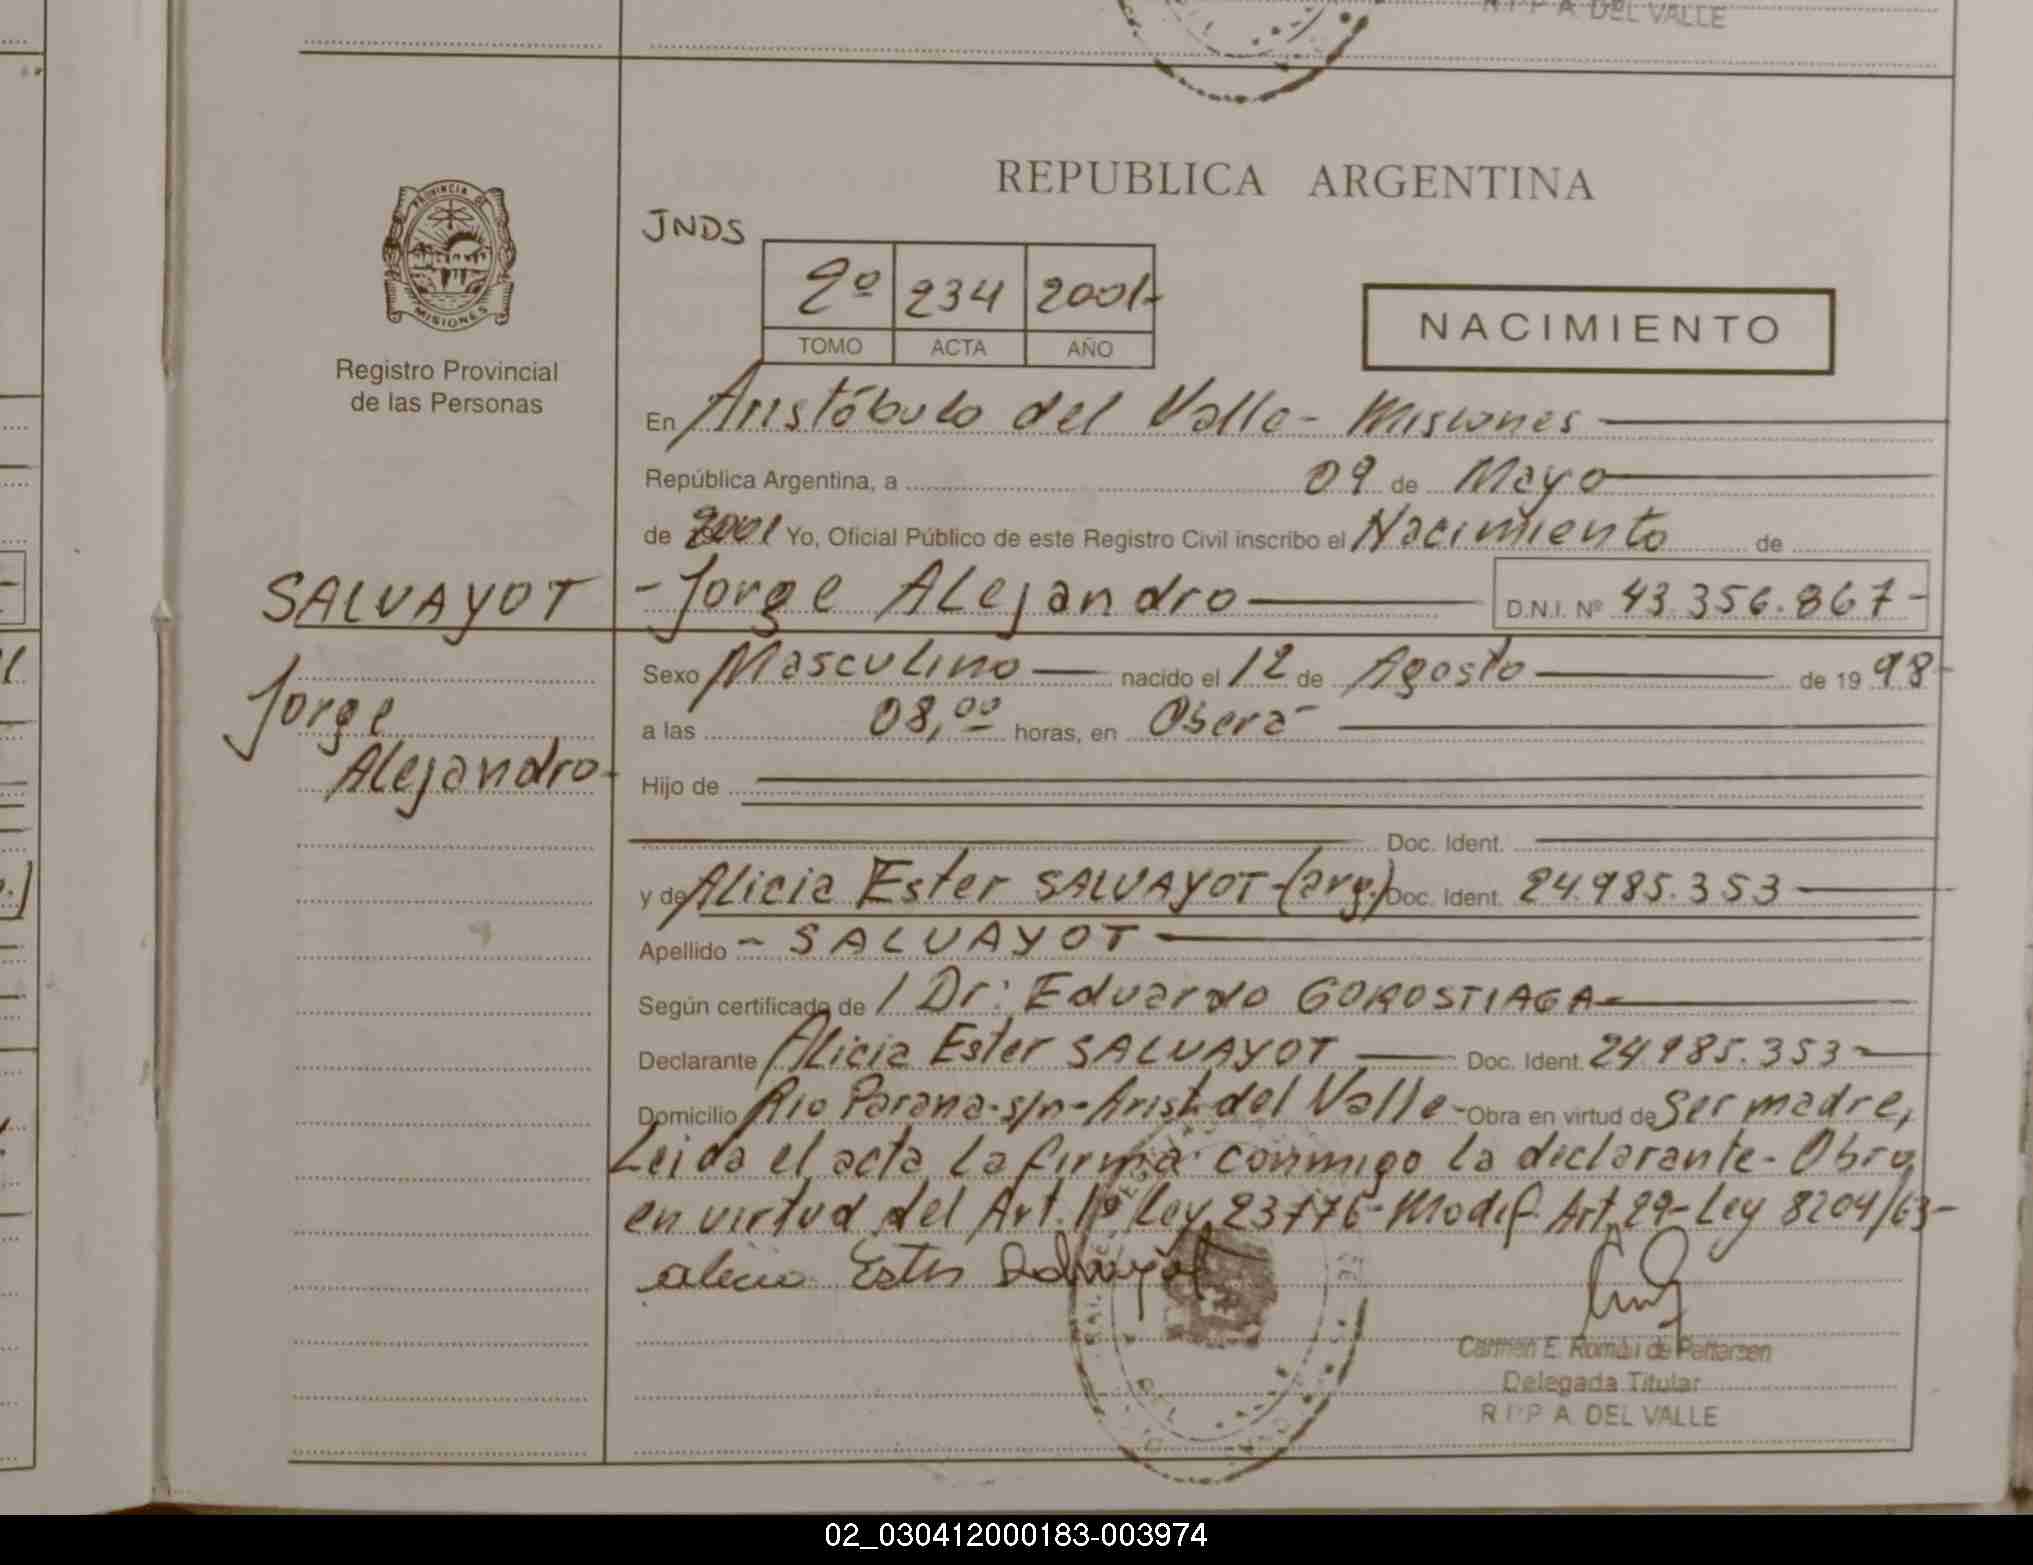 DEL VALLE
REPUBLICA ARGENTINA
PROVINCIA DE
MISIONES
Registro Provincial
de las Personas
JNDS
2º 234 2001-
TOMO ACTA AÑO
NACIMIENTO
En Aristóbulo del Valle - Misiones
República Argentina, a 09 de Mayo
de 2001 Yo, Oficial Público de este Registro Civil inscribo el Nacimiento de
SALVAYOT
Jorge
Alejandro-
- Jorge Alejandro D.N.I. Nº 43.356.867-
Sexo Masculino nacido el 12 de Agosto de 1998-
a las 08,00 horas, en Oberá
Hijo de
Doc. Ident.
y de Alicia Ester SALVAYOT-(arg.) Doc. Ident. 24.985.353
Apellido - SALVAYOT
Según certificado de / Dr: Eduardo GOROSTIAGA-
Declarante Alicia Ester SALVAYOT Doc. Ident. 24.985.353-
Domicilio Rio Parana-s/n-Arist. del Valle- Obra en virtud de ser madre,
Leida el acta la firma conmigo la declarante- Obro
en virtud del Art. 1º Ley 23776- Modif. Art. 29-Ley 8204/63-
alicia Ester Salvayot
Carmen E. Román de Pettersen
Delegada Titular
R.P.P A. DEL VALLE
02_030412000183-003974